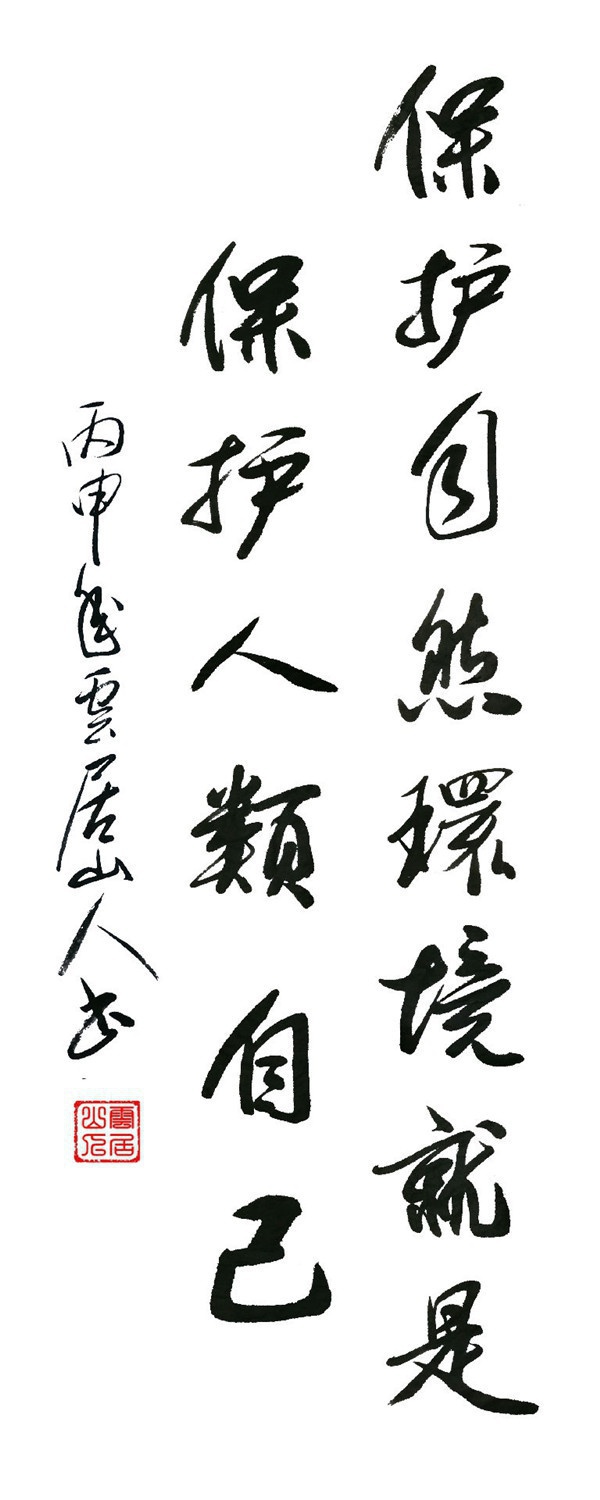 保护自然環境就是
保护人類自己
丙申年雲居山人书
雲居山人